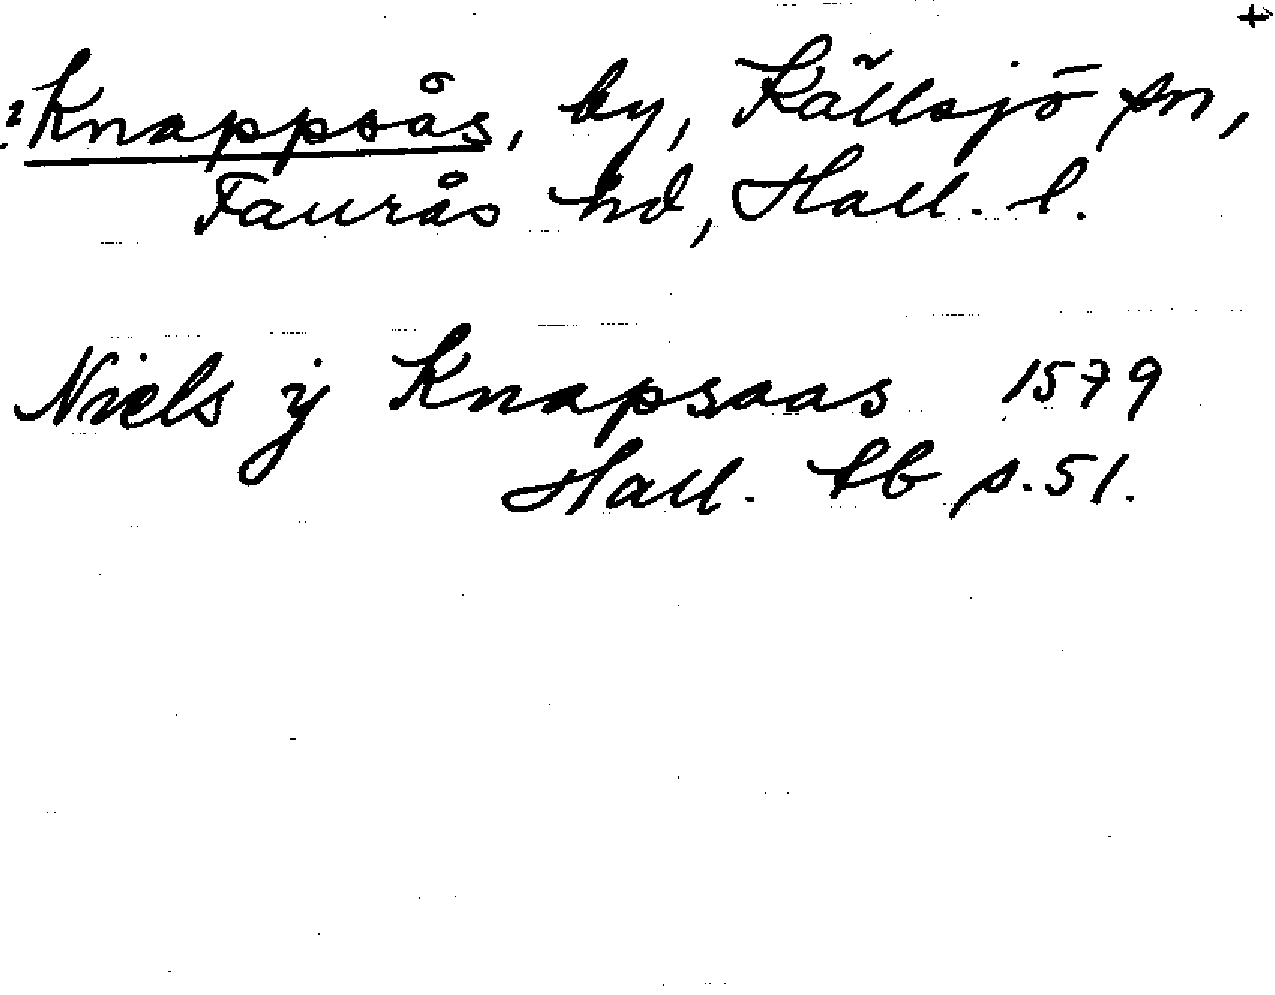 Knappsås, by, Källsjö sn,
Faurås hd, Hall. l.
Niels ij Knapsaas 1579
Hall. tb s. 51.